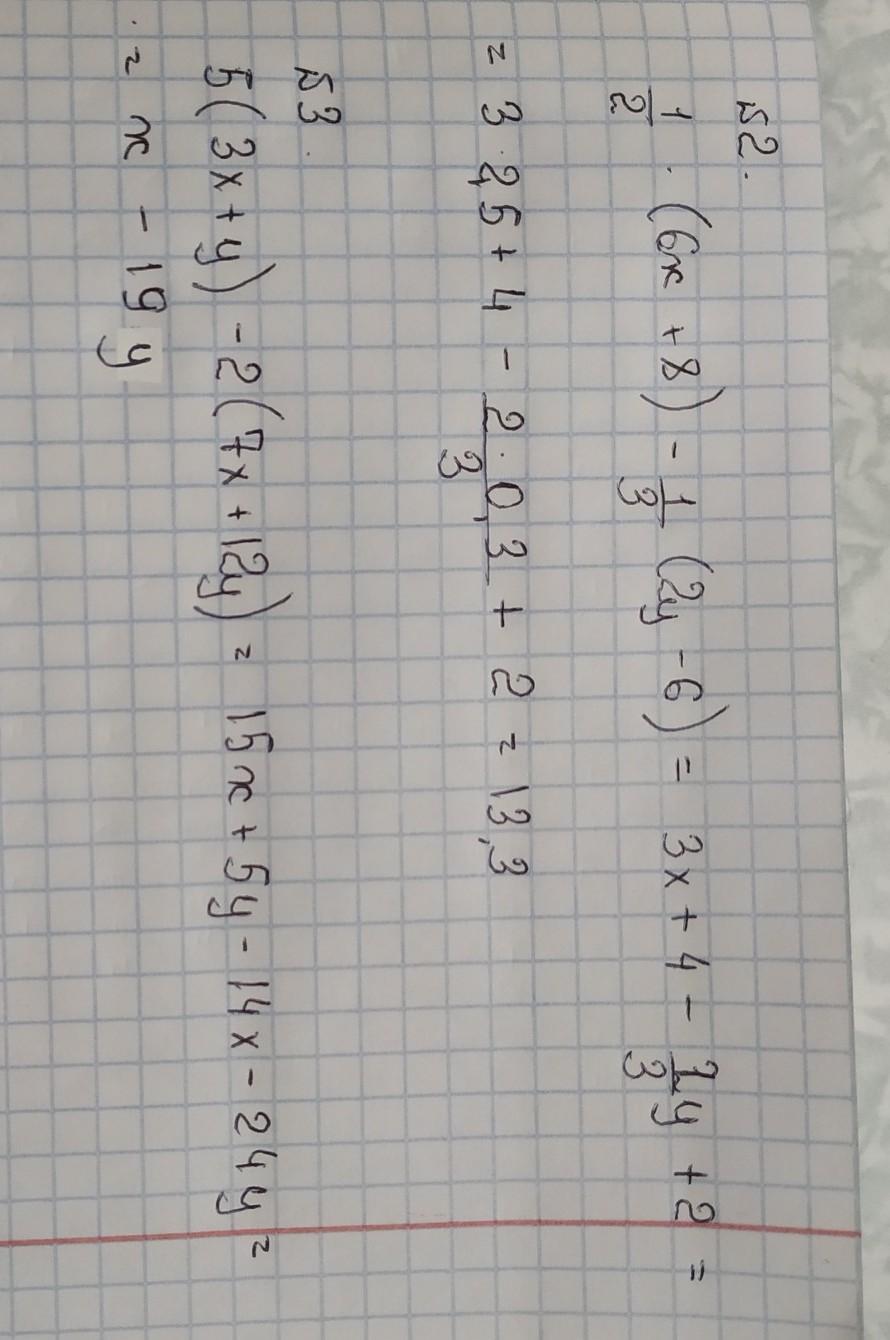 №2.
1/2 · (6x + 8) - 1/3 (2y - 6) = 3x + 4 - 2/3 y + 2 =
= 3 · 2,5 + 4 - 2 · 0,3/3 + 2 = 13,3
№3.
5(3x + y) - 2(7x + 12y) = 15x + 5y - 14x - 24y =
= x - 19y